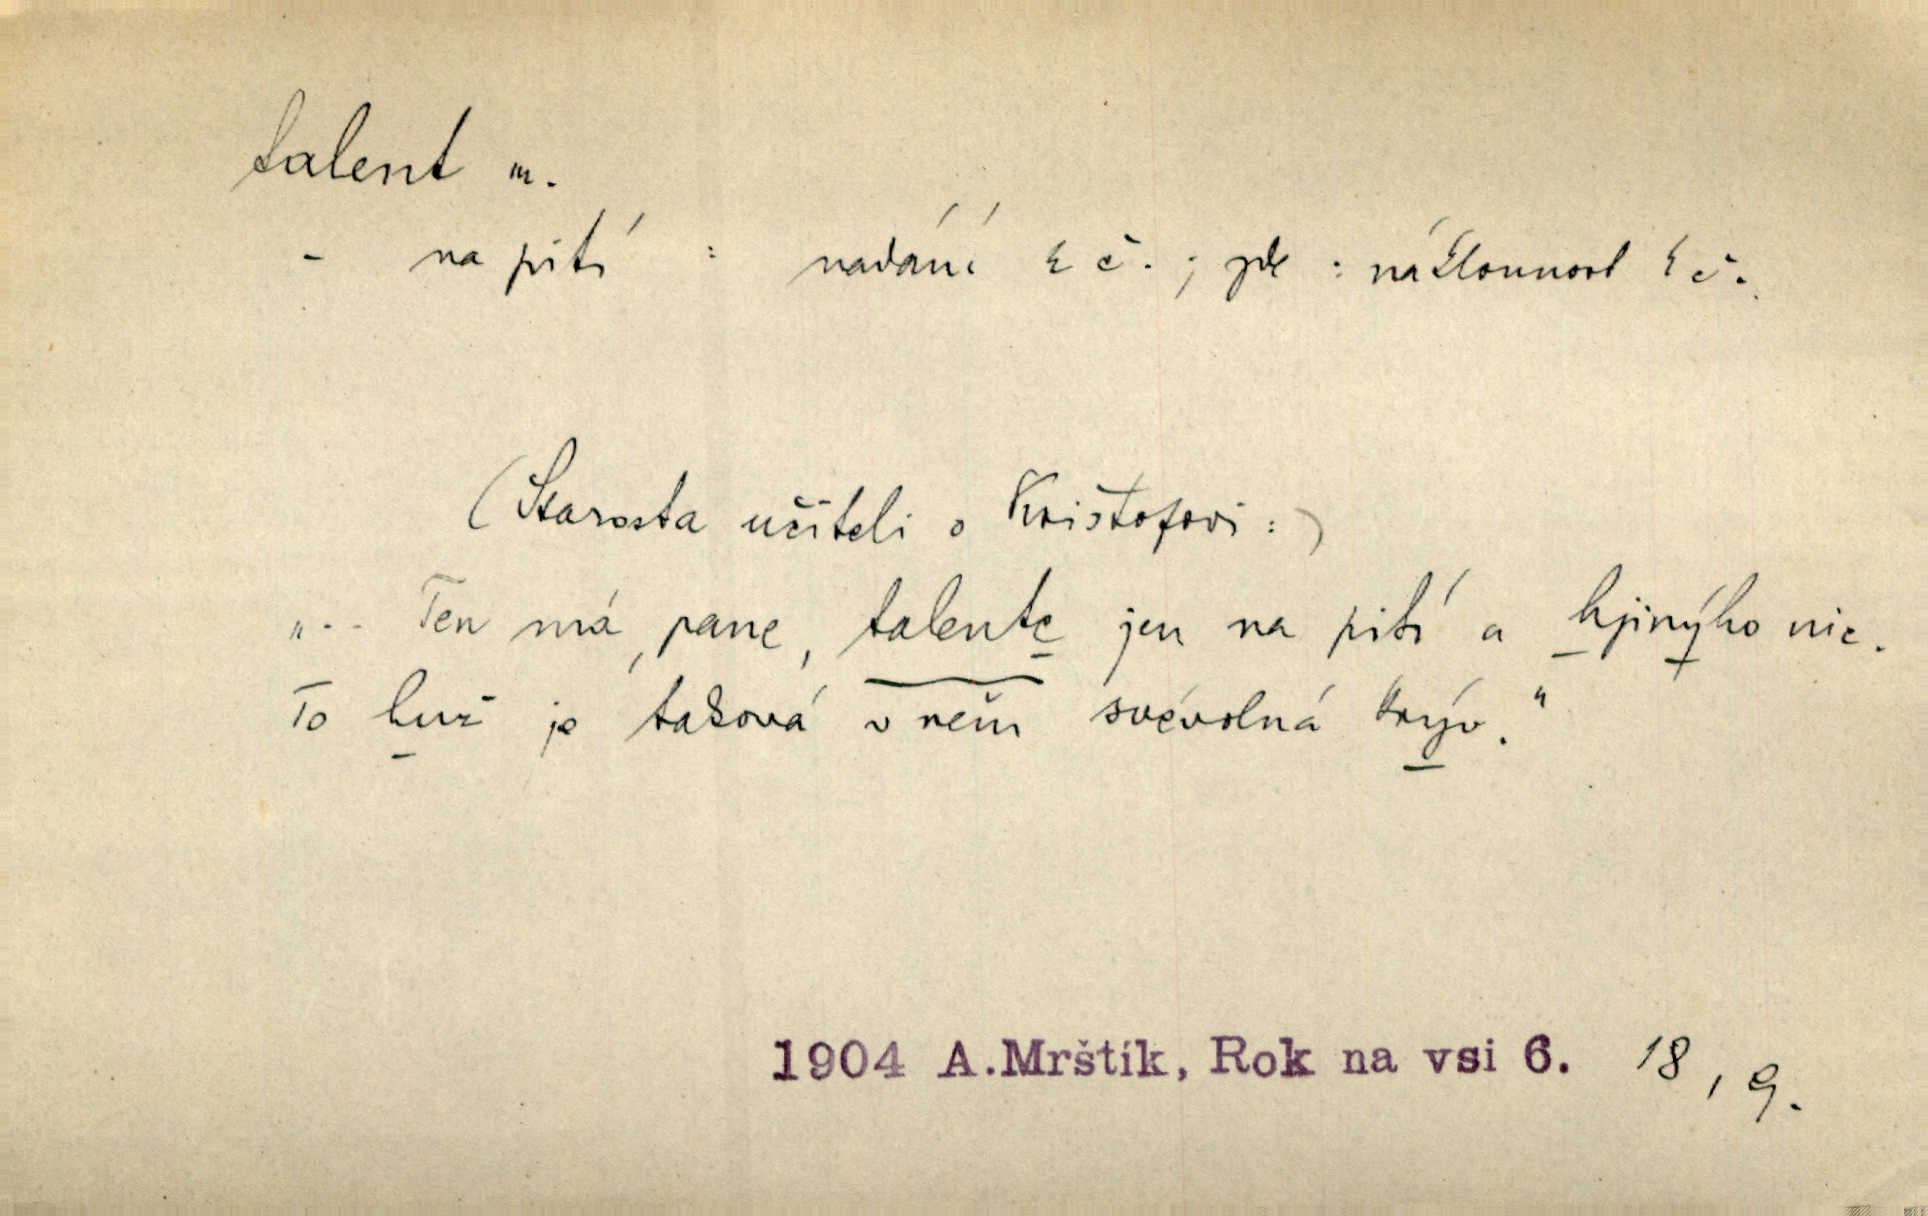 talent m.
- na pití : nadání k č. ; zde : náklonnost k č.
(Starosta učiteli o Krištofovi :)
"-- Ten má, pane, talente jen na pití a hjinýho nic.
To huž je taková v něm svévolná krýv."
1904 A.Mrštík, Rok na vsi 6. 18, 9.